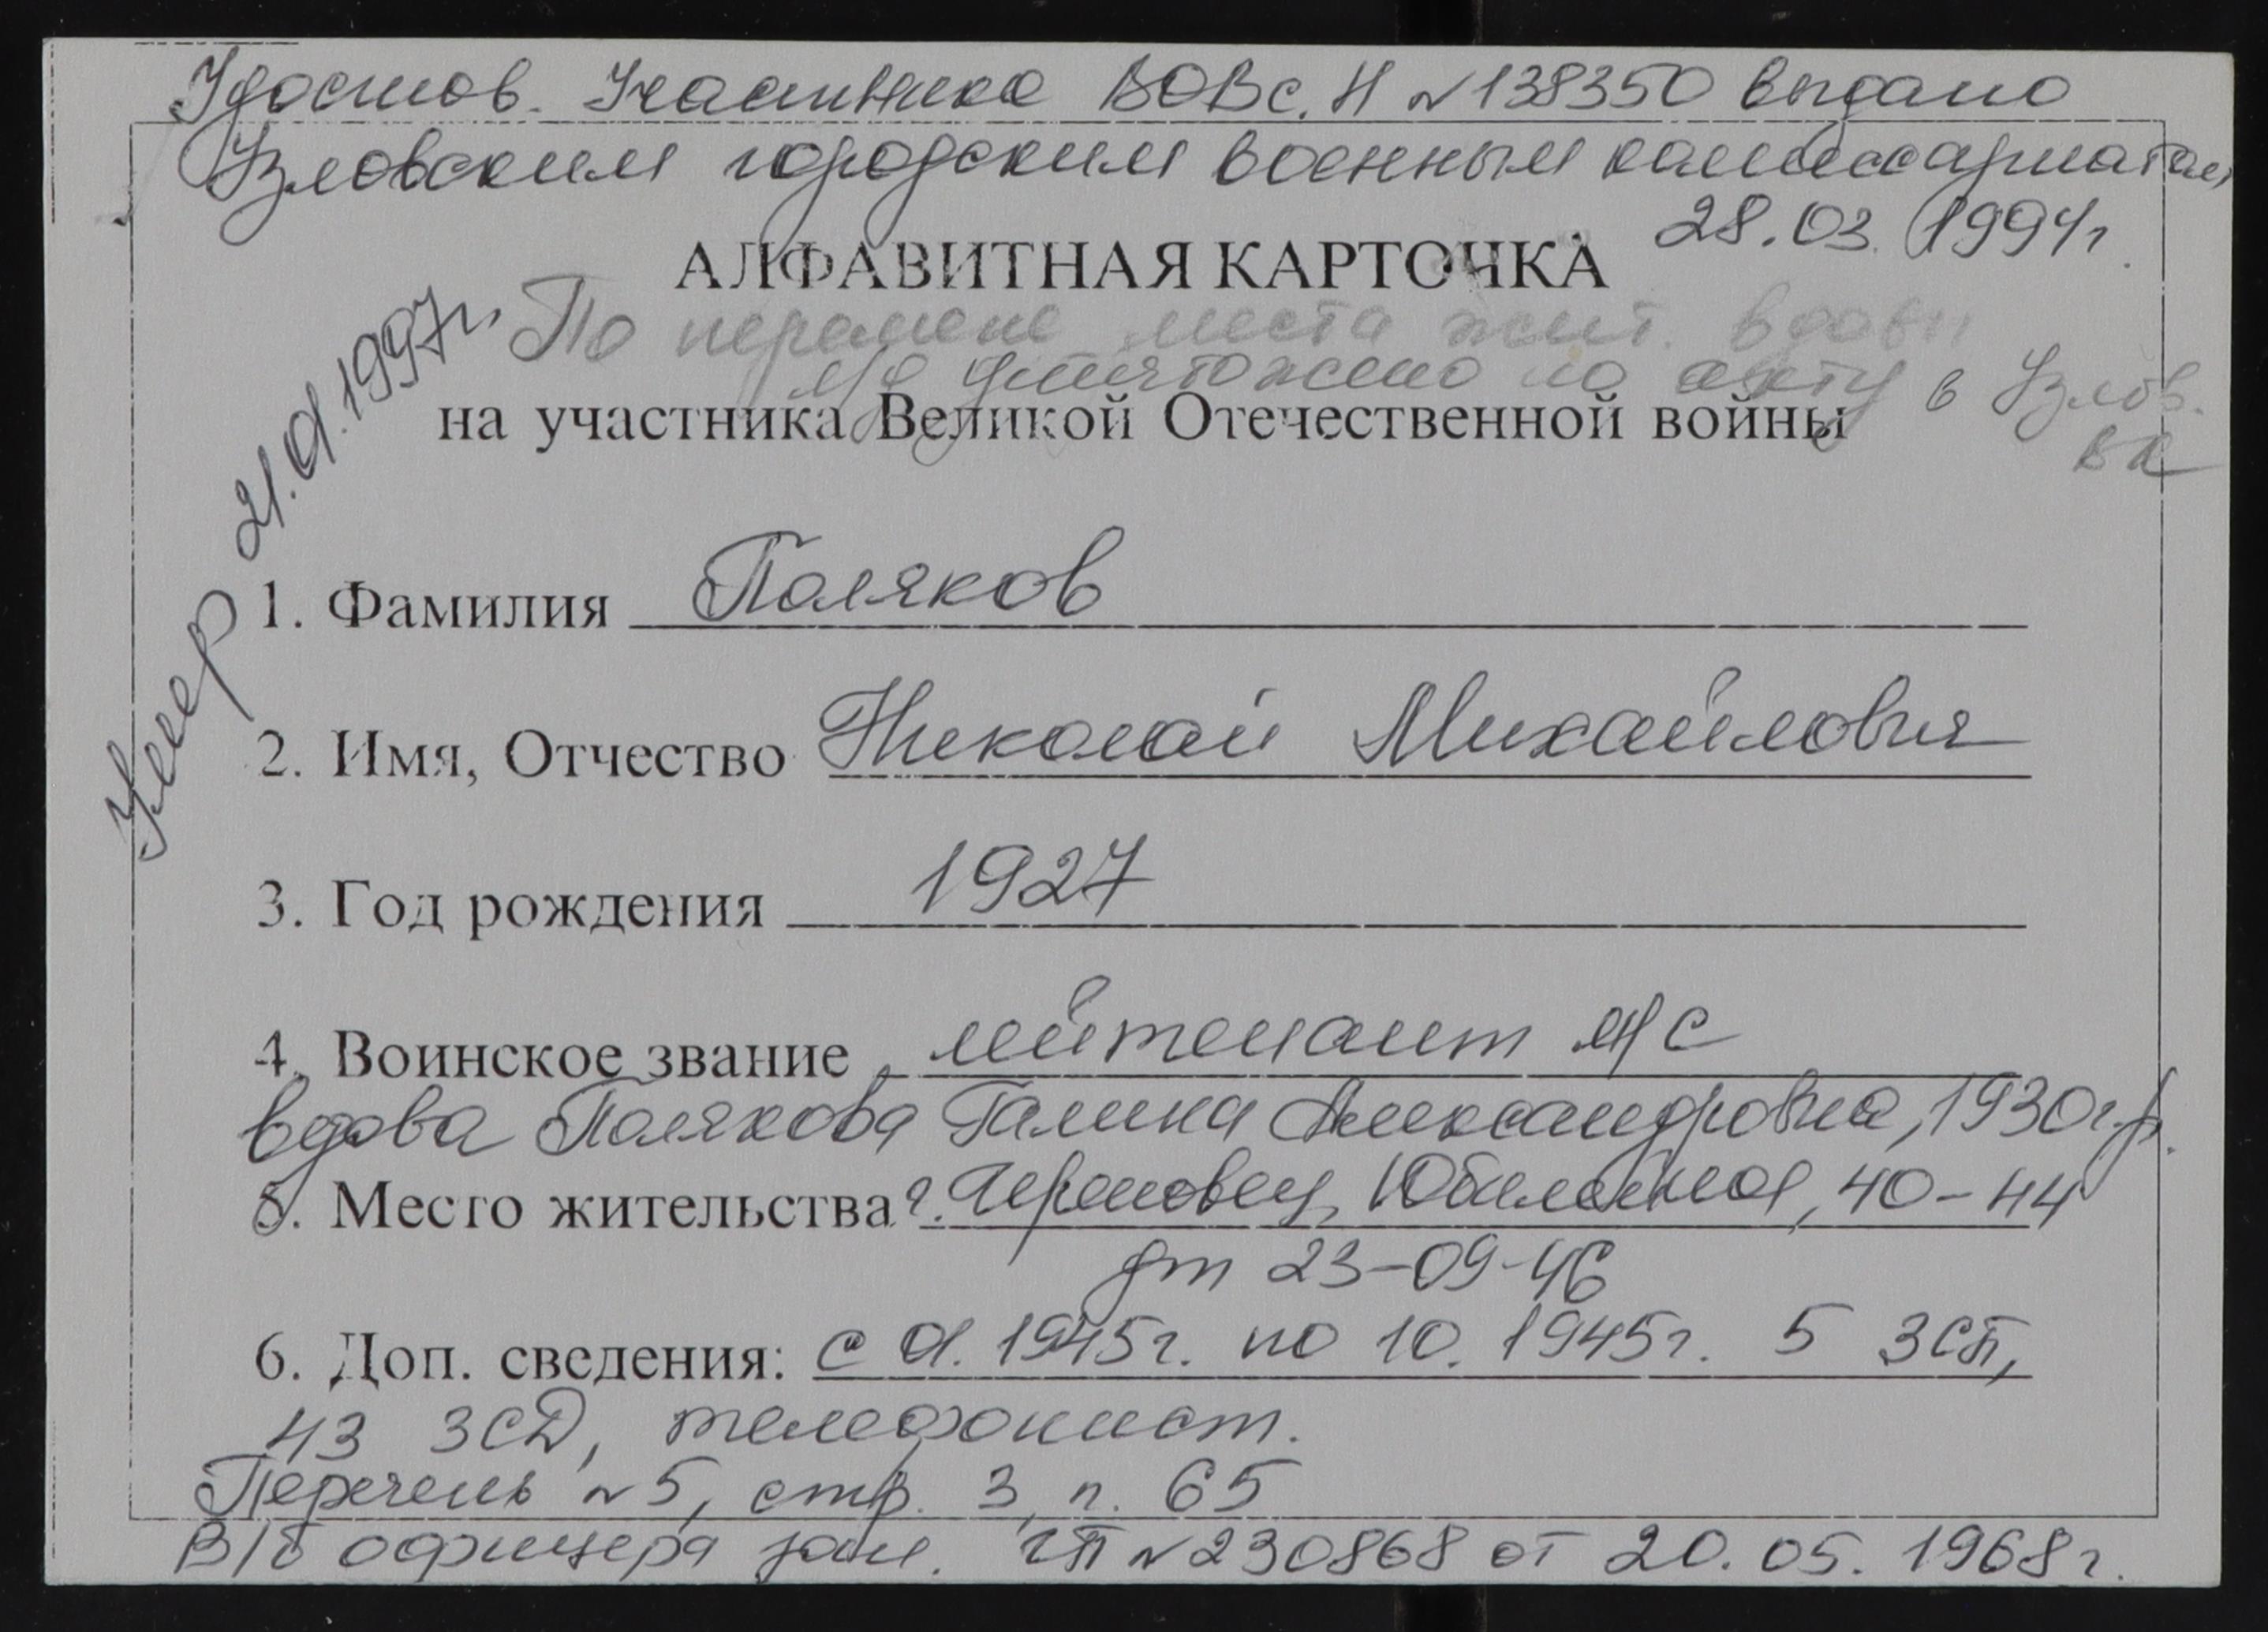 Удостов. Участника ВОВ с. Н №138350 выдано
Узловским городским военным комиссариатом
28.03.1994г.
АЛФАВИТНАЯ КАРТОЧКА
По перемене места жит. вдовы
л/д уничтожено по акту в Узлов.
на участника Великой Отечественной войны
ВК
Умер 21.01.1997г.
1. Фамилия Поляков
2. Имя, Отчество Николай Михайлович
3. Год рождения 1927
4. Воинское звание лейтенант м/с
вдова Полякова Галина Александровна, 1930г.р.
5. Место жительства г. Череповец, Юбилейная, 40-44
дт 23-09-46
6. Доп. сведения: с 01.1945г. по 10.1945г. 5 ЗСП,
43 ЗСД, телефонист.
Перечень №5, стр. 3, п. 65
В/б офицера зап. ГП №230868 от 20.05.1968г.